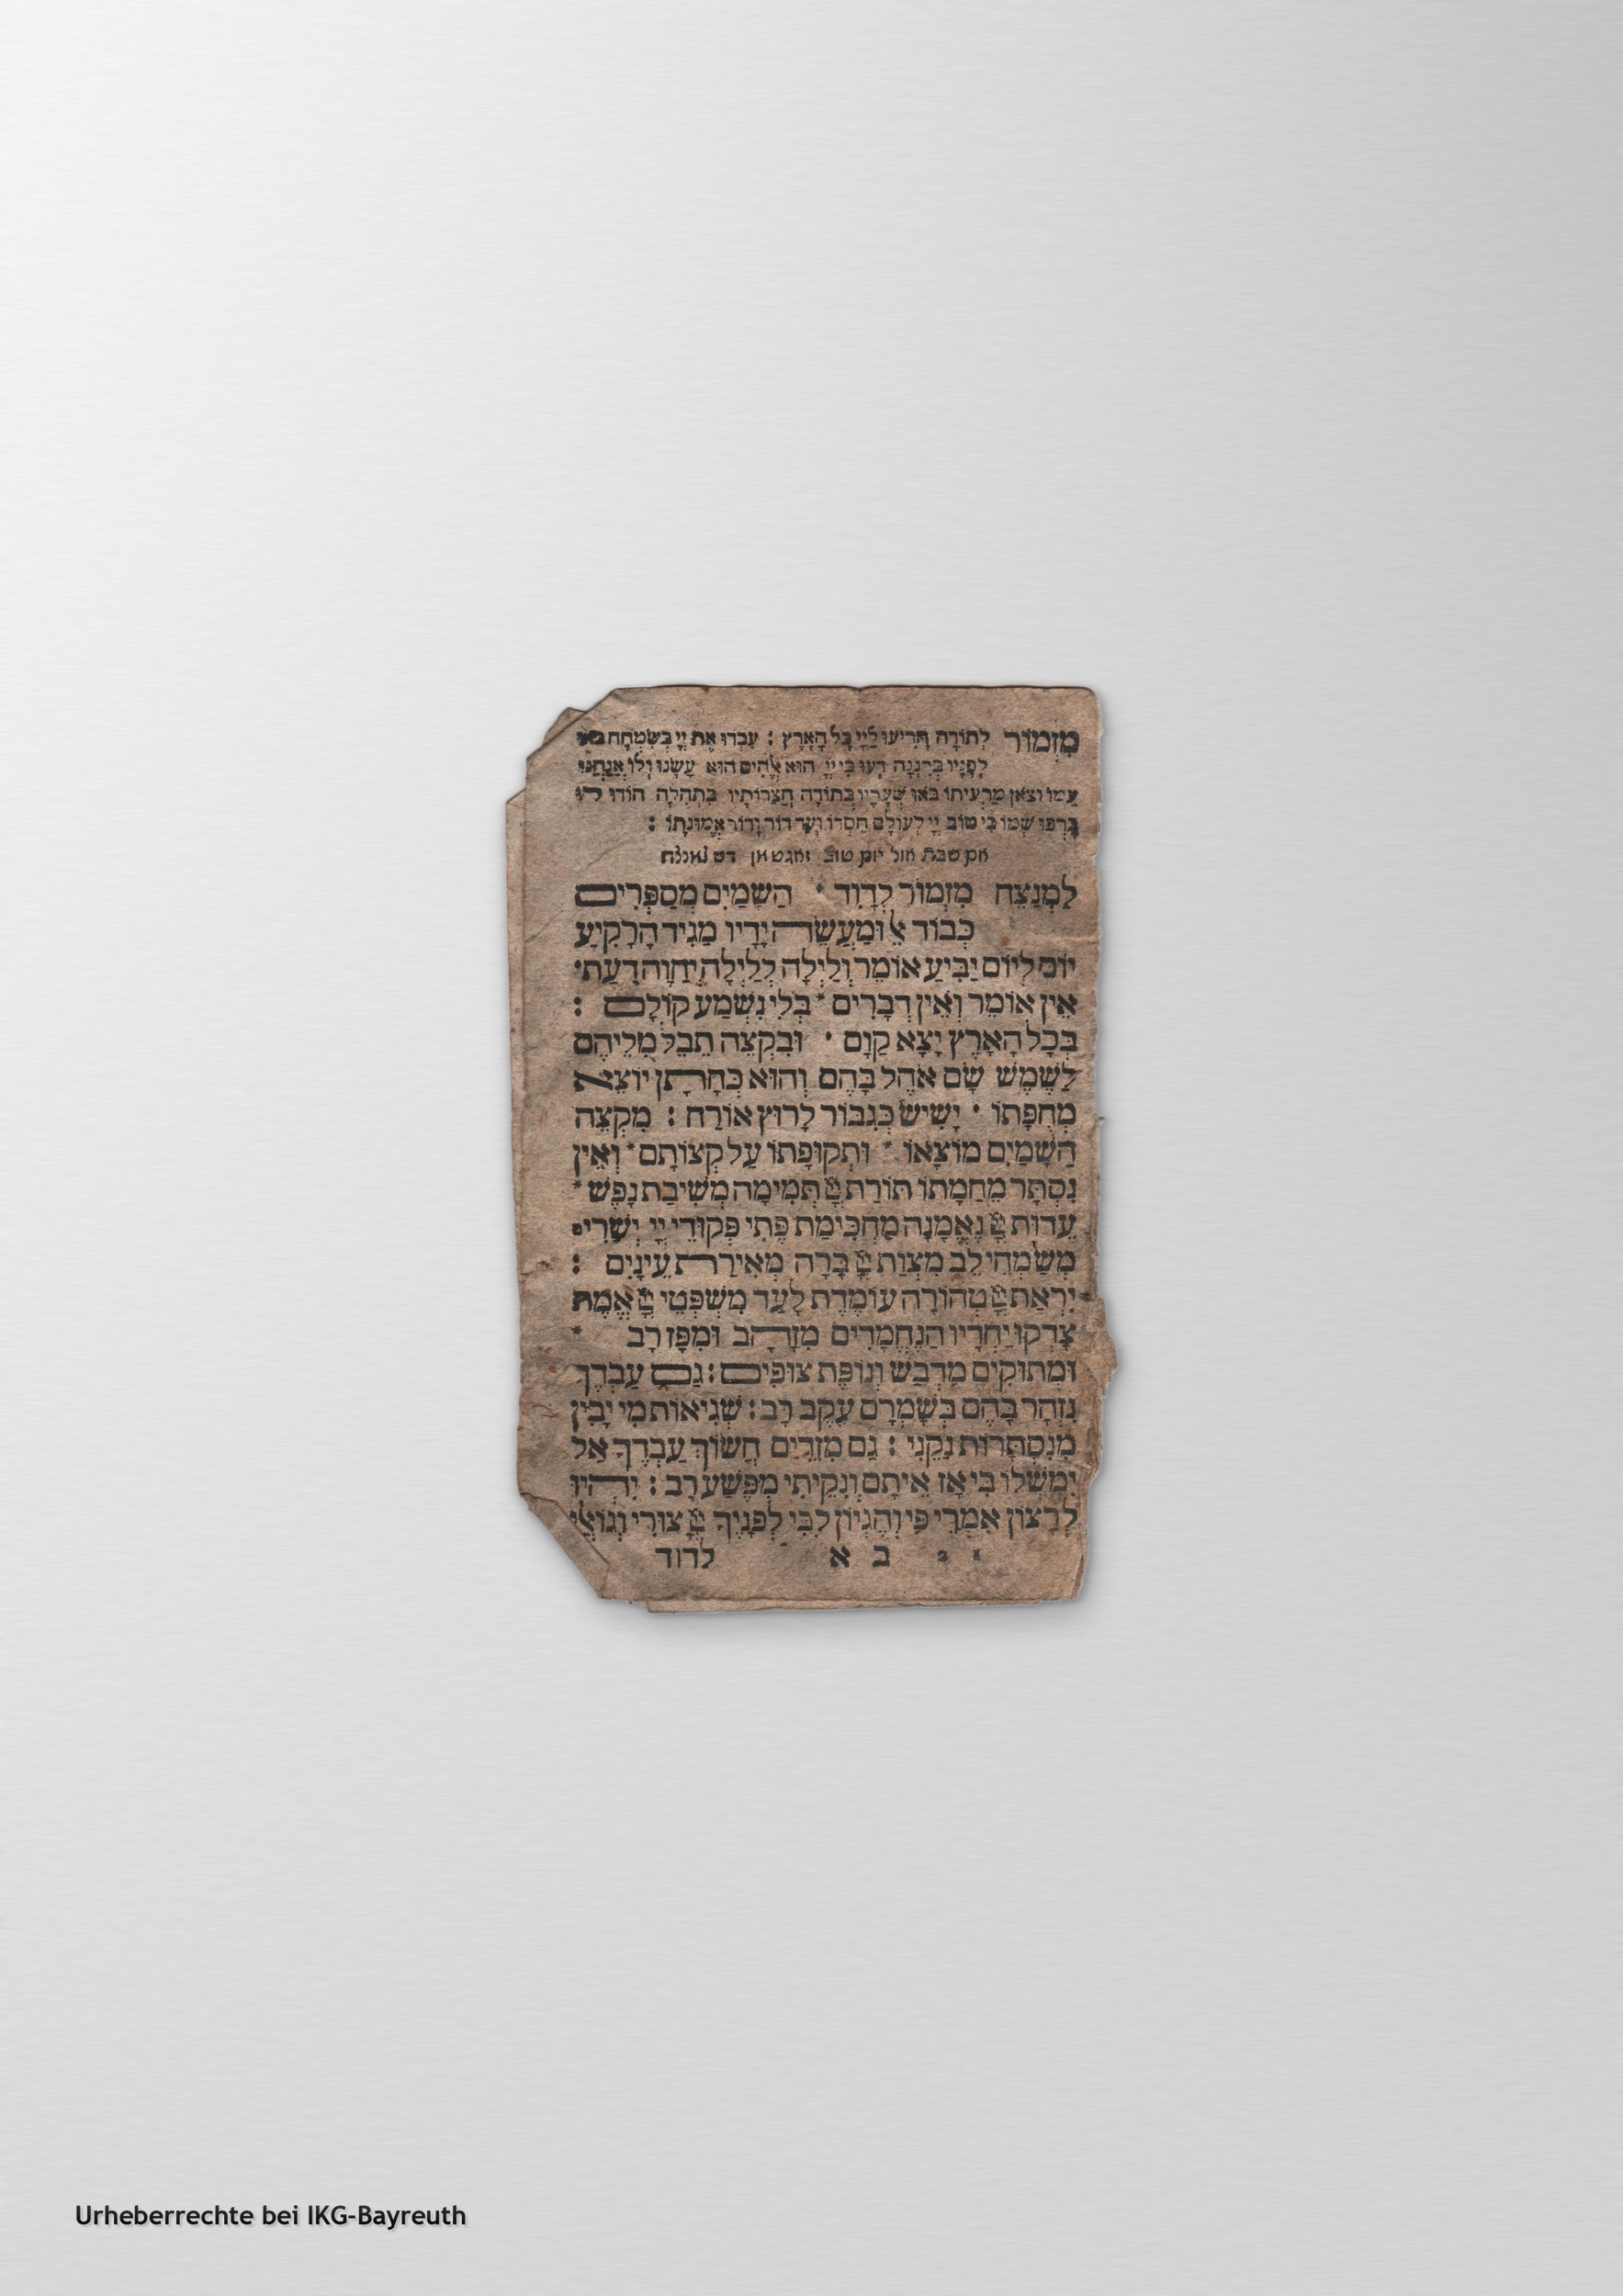 מִזְמוֹר לְתוֹרָה הָרִיעוּ לַיְיָ כָּל הָאָרֶץ : עִבְדוּ אֶת יְיָ בְּשִׂמְחָה בֹאוּ
לְפָנָיו בִּרְנָנָה דְּעוּ כִּי יְיָ הוּא אֱלֹהִים הוּא עָשָׂנוּ וְלוֹ אֲנַחְנוּ
עַמּוֹ וְצֹאן מַרְעִיתוֹ בֹּאוּ שְׁעָרָיו בְּתוֹדָה חֲצֵרוֹתָיו בִּתְהִלָּה הוֹדוּ לוֹ
בָּרְכוּ שְׁמוֹ כִּי טוֹב יְיָ לְעוֹלָם חַסְדּוֹ וְעַד דּוֹר וָדוֹר אֱמוּנָתוֹ :
אם שבת אול יום טוב זאגט מן דש למנצח
לַמְנַצֵּחַ מִזְמוֹר לְדָוִד · הַשָּׁמַיִם מְסַפְּרִים
כְּבוֹד אֵל וּמַעֲשֵׂה יָדָיו מַגִּיד הָרָקִיעַ
יוֹם לְיוֹם יַבִּיעַ אוֹמֶר וְלַיְלָה לְּלַיְלָה יְחַוֶּה דָּעַת ·
אֵין אוֹמֶר וְאֵין דְּבָרִים * בְּלִי נִשְׁמַע קוֹלָם :
בְּכָל הָאָרֶץ יָצָא קַוָּם · וּבִקְצֵה תֵבֵל מִלֵּיהֶם
לַשֶּׁמֶשׁ שָׂם אֹהֶל בָּהֶם וְהוּא כְּחָתָן יוֹצֵא
מֵחֻפָּתוֹ · יָשִׂישׂ כְּגִבּוֹר לָרוּץ אוֹרַח : מִקְצֵה
הַשָּׁמַיִם מוֹצָאוֹ * וּתְקוּפָתוֹ עַל קְצוֹתָם * וְאֵין
נִסְתָּר מֵחַמָּתוֹ תּוֹרַת יְיָ תְּמִימָה מְשִׁיבַת נָפֶשׁ *
עֵדוּת יְיָ נֶאֱמָנָה מַחְכִּימַת פֶּתִי פִּקּוּדֵי יְיָ יְשָׁרִים
מְשַׂמְּחֵי לֵב מִצְוַת יְיָ בָּרָה מְאִירַת עֵינָיִם :
יִרְאַת יְיָ טְהוֹרָה עוֹמֶדֶת לָעַד מִשְׁפְּטֵי יְיָ אֱמֶת
צָדְקוּ יַחְדָּיו הַנֶּחֱמָדִים מִזָּהָב וּמִפָּז רָב *
וּמְתוּקִים מִדְּבַשׁ וְנוֹפֶת צוּפִים : גַּם עַבְדְּךָ
נִזְהָר בָּהֶם בְּשָׁמְרָם עֵקֶב רָב : שְׁגִיאוֹת מִי יָבִין
מִנִּסְתָּרוֹת נַקֵּנִי : גַּם מִזֵּדִים חֲשׂוֹךְ עַבְדֶּךָ אַל
יִמְשְׁלוּ בִי אָז אֵיתָם וְנִקֵּיתִי מִפֶּשַׁע רָב : יִהְיוּ
לְרָצוֹן אִמְרֵי פִי וְהֶגְיוֹן לִבִּי לְפָנֶיךָ יְיָ צוּרִי וְגוֹאֲלִי
ב א לדוד
Urheberrechte bei IKG-Bayreuth